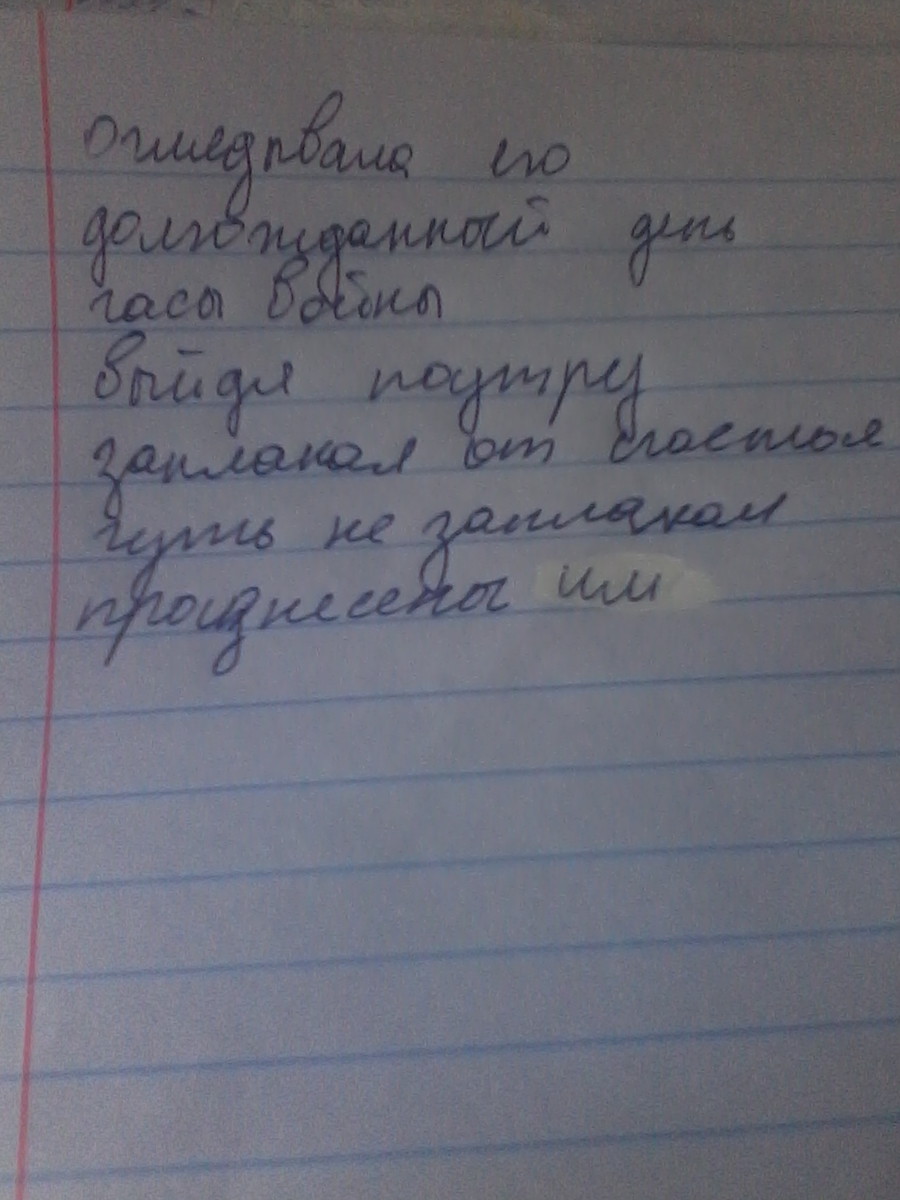 оглядывала его
долгожданный день
часы войны
выйдя поутру
заплакал от счастья
чуть не заплакал
произнесены им